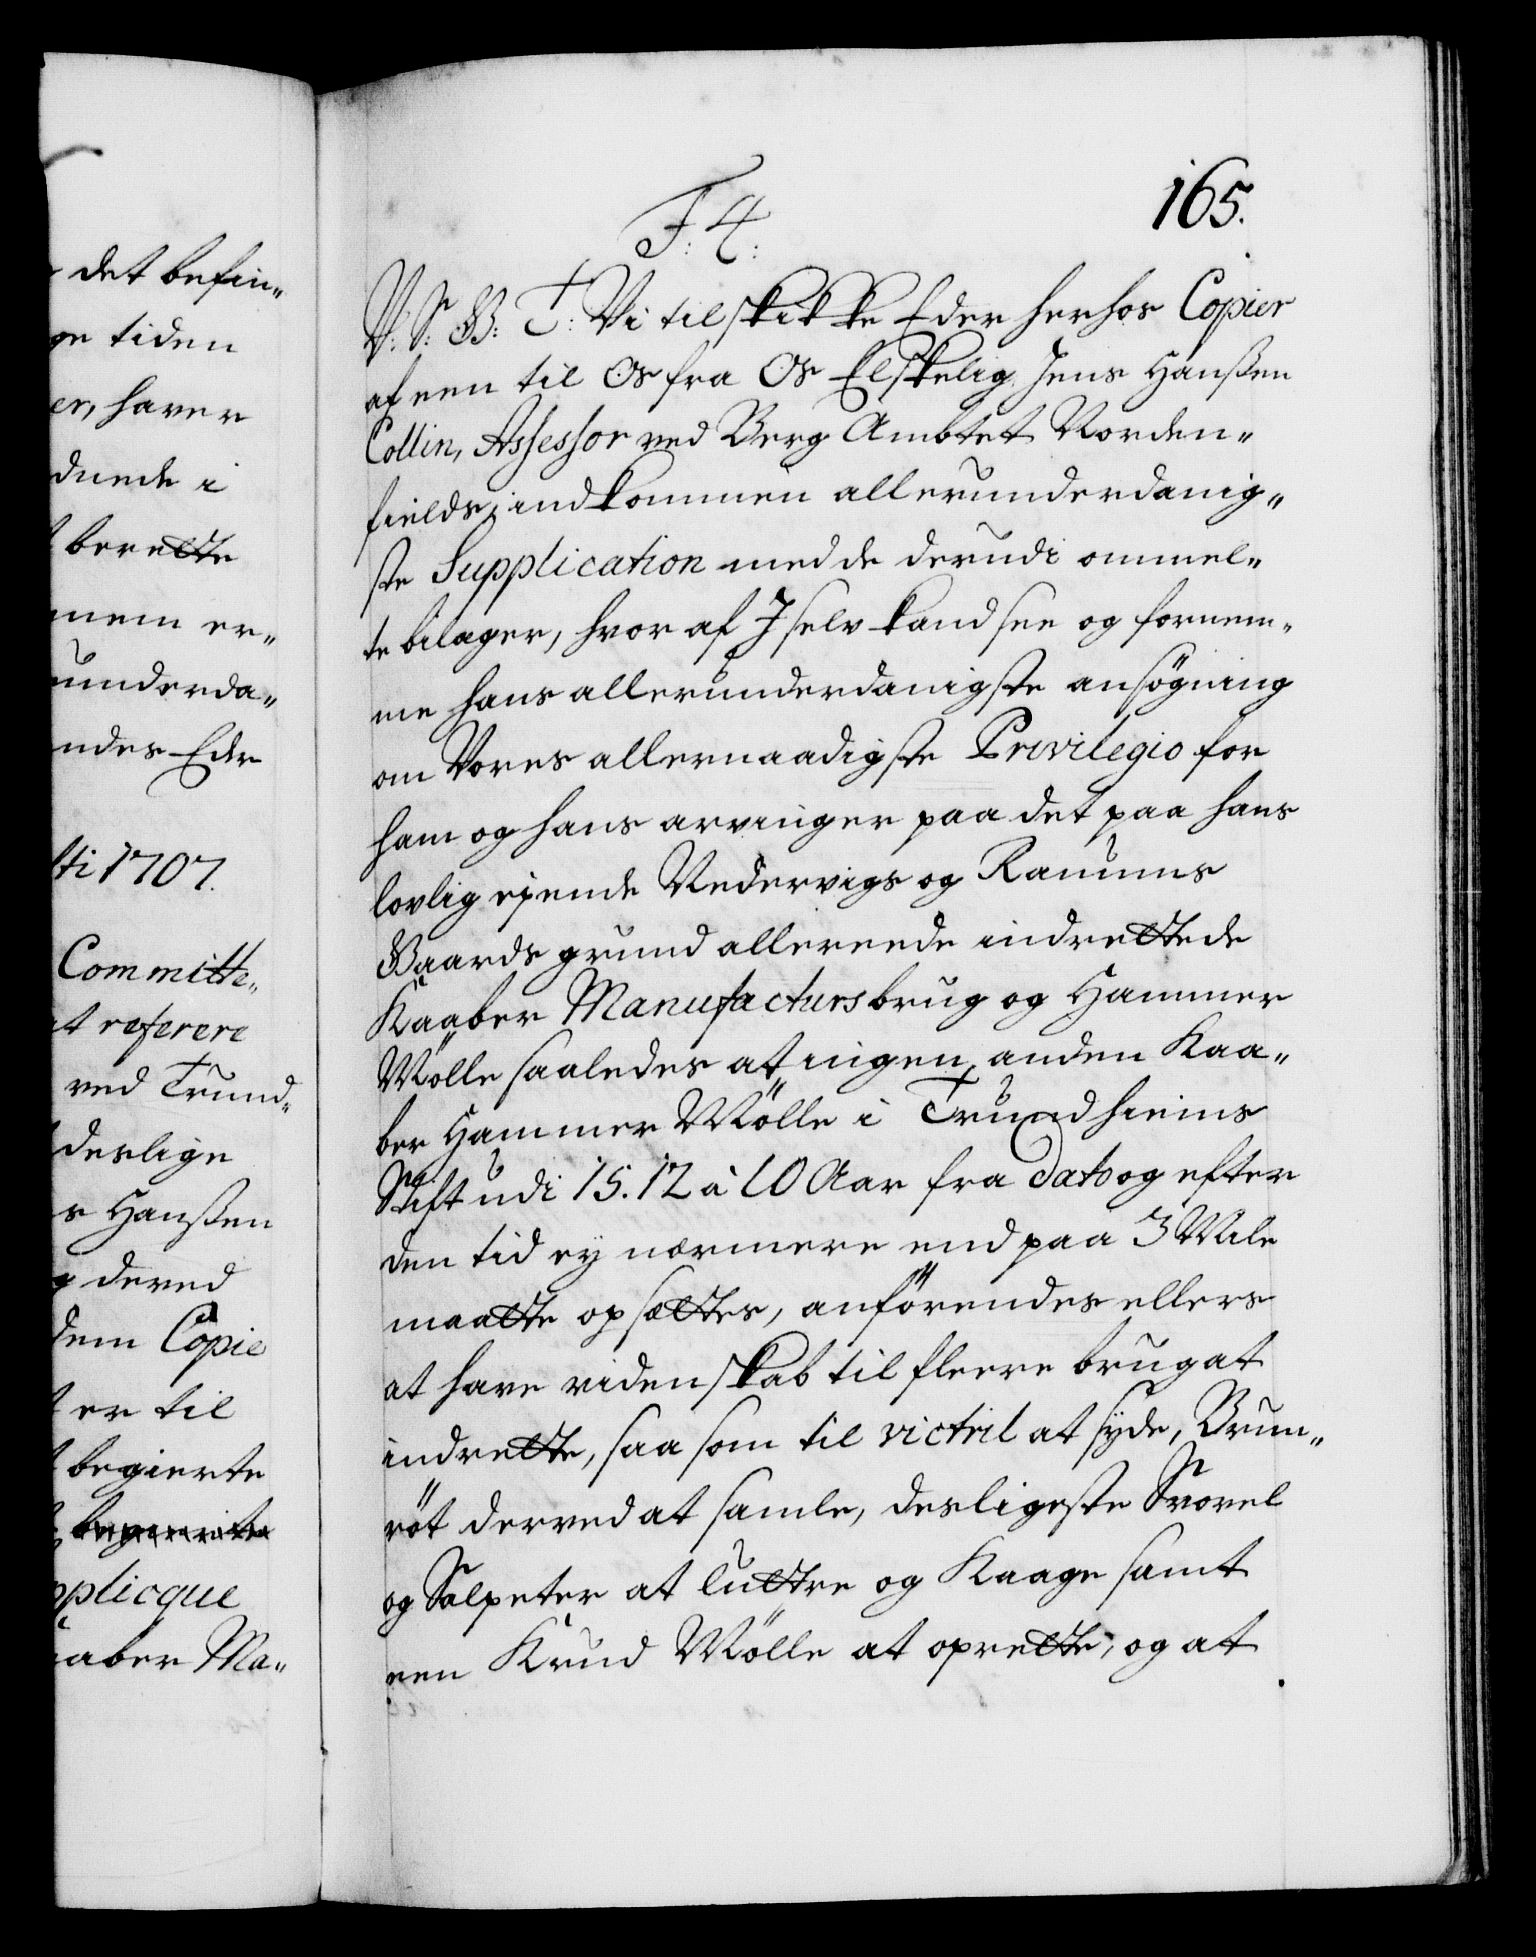 det befin„
ge tiden
er, haver
duede i
berette
mem er„
underda„
ndes Eder
ti 1707.
Committe„
at referere
ved Trund„
deslige
s Hanßen
dered
dem Copie
er til
begierte
begierte
pplicque
aaber Ma„
165.
F: 4:
V: S: G: T: Vi tilskikke Eder herhos Copier
af een til Os fra Os Elskelig Jens Hanßen
Collin, Assessor ved Berg Ambtet Norden„
fields, indkommen allerunderdanig„
ste Supplication med de derudi ommel„
te bilager, hvor af I selv kand see og fornem„
me hans allerunderdanigste ansøgning
om Vores allernaadigste Privilegio for
ham og hans arvinger paa det paa hans
lovlig ejende Nedervigs og Ranums
Gaards grund allereede indrettede
Kaaber Manufactursbrug og Hammer
Mölle saaledes at ingen anden Kaa„
ber Hammer Mölle i Trundhiems
Stift udi 15. 12 à 10 Aar fra dato og efter
den tid ey nærmere end paa 3 Mile
maatte opsættes, anförendes ellers
at have videnskab til fleere brug at
indrette, saa som til victril at syde, Brun„
röt derved at samle, desligeste Svovel
og Salpeter at luttre og Kaage samt
een Krud Mölle at oprette, og at